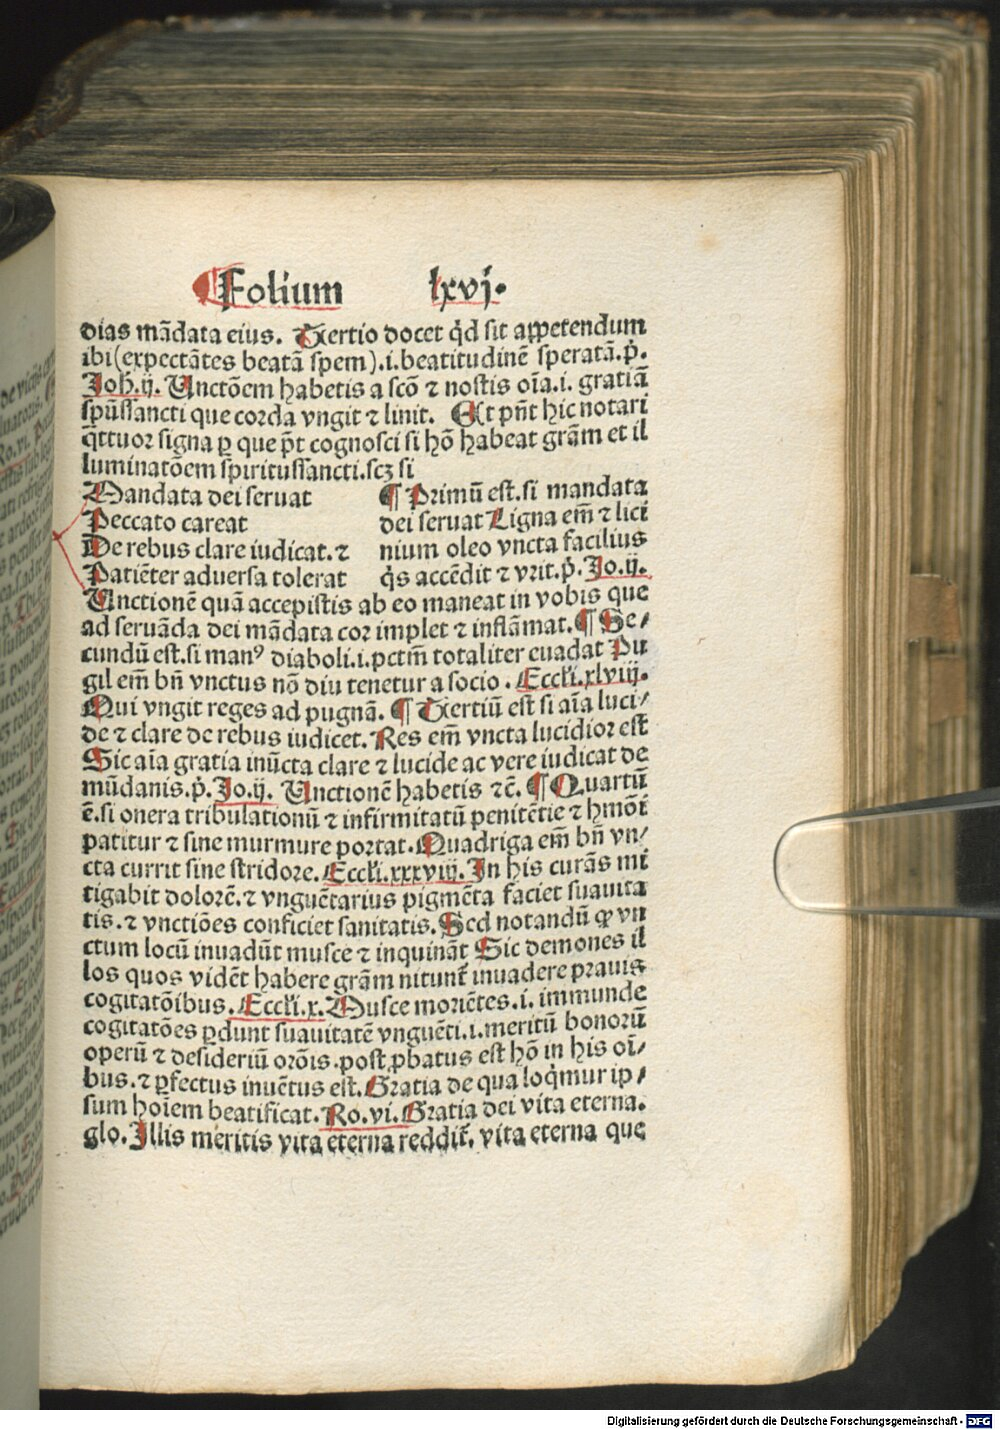 Folium lxvj.
dias mādata eius. Tertio docet q̇d sit appetendum
ibi (expectātes beatā spem).i. beatitudinē speratā. p̄.
Joh̄.ij. Unctōem habetis a scō ⁊ nostis oīa.i. gratiā
spūssancti que corda vngit ⁊ linit. Et pn̄t hic notari
q̄ttuor signa ꝑ que p̄t cognosci si hō habeat grām et il
luminatōem spiritussancti.scꝫ si
Mandata dei seruat
Peccato careat
De rebus clare iudicat. ⁊
Patiēter aduersa tolerat
¶ Primū est.si mandata
dei seruat Ligna em̄ ⁊ lici
nium oleo vncta facilius
q̇s accēdit ⁊ vrit.p̄. Jo.ij.
Unctionē quā accepistis ab eo maneat in vobis que
ad seruāda dei mādata cor implet ⁊ inflāmat. ¶ Se/
cundū est.si manꝰ diaboli.i.pctm̄ totaliter euadat Pu
gil em̄ bn̄ vnctus nō diu tenetur a socio. Eccłi.xlviij.
Qui vngit reges ad pugnā. ¶ Tertiū est si aīa luci/
de ⁊ clare de rebus iudicet. Res em̄ vncta lucidior est
Sic aīa gratia inūcta clare ⁊ lucide ac vere iudicat de
mūdanis.p̄. Jo.ij. Unctionē habetis ⁊c̄. ¶ Quartū
ē.si onera tribulationū ⁊ infirmitatū penitētie ⁊ hmōi
patitur ⁊ sine murmure portat. Quadriga em̄ bn̄ vn/
cta currit sine stridore. Eccłi.xxxviij. In his curās mi
tigabit dolorē.⁊ vnguētarius pigmēta faciet suauita
tis.⁊ vnctiōes conficiet sanitatis. Sed notandū ꝙ vn
ctum locū inuadūt musce ⁊ inquināt Sic demones il
los quos vidēt habere grām nitunt̄ inuadere prauis
cogitatōibus. Eccłi.x. Musce moriētes.i. immunde
cogitatōes ꝑdunt suauitatē vnguēti.i.meritū bonorū
operū ⁊ desideriū orōis.post ꝓbatus est hō in his oī/
bus.⁊ ꝑfectus inuētus est. Gratia de qua loq̇mur ip/
sum hoīem beatificat. Ro.vi. Gratia dei vita eterna.
glo. Illis meritis vita eterna reddit̄, vita eterna que
Digitalisierung gefördert durch die Deutsche Forschungsgemeinschaft - DFG